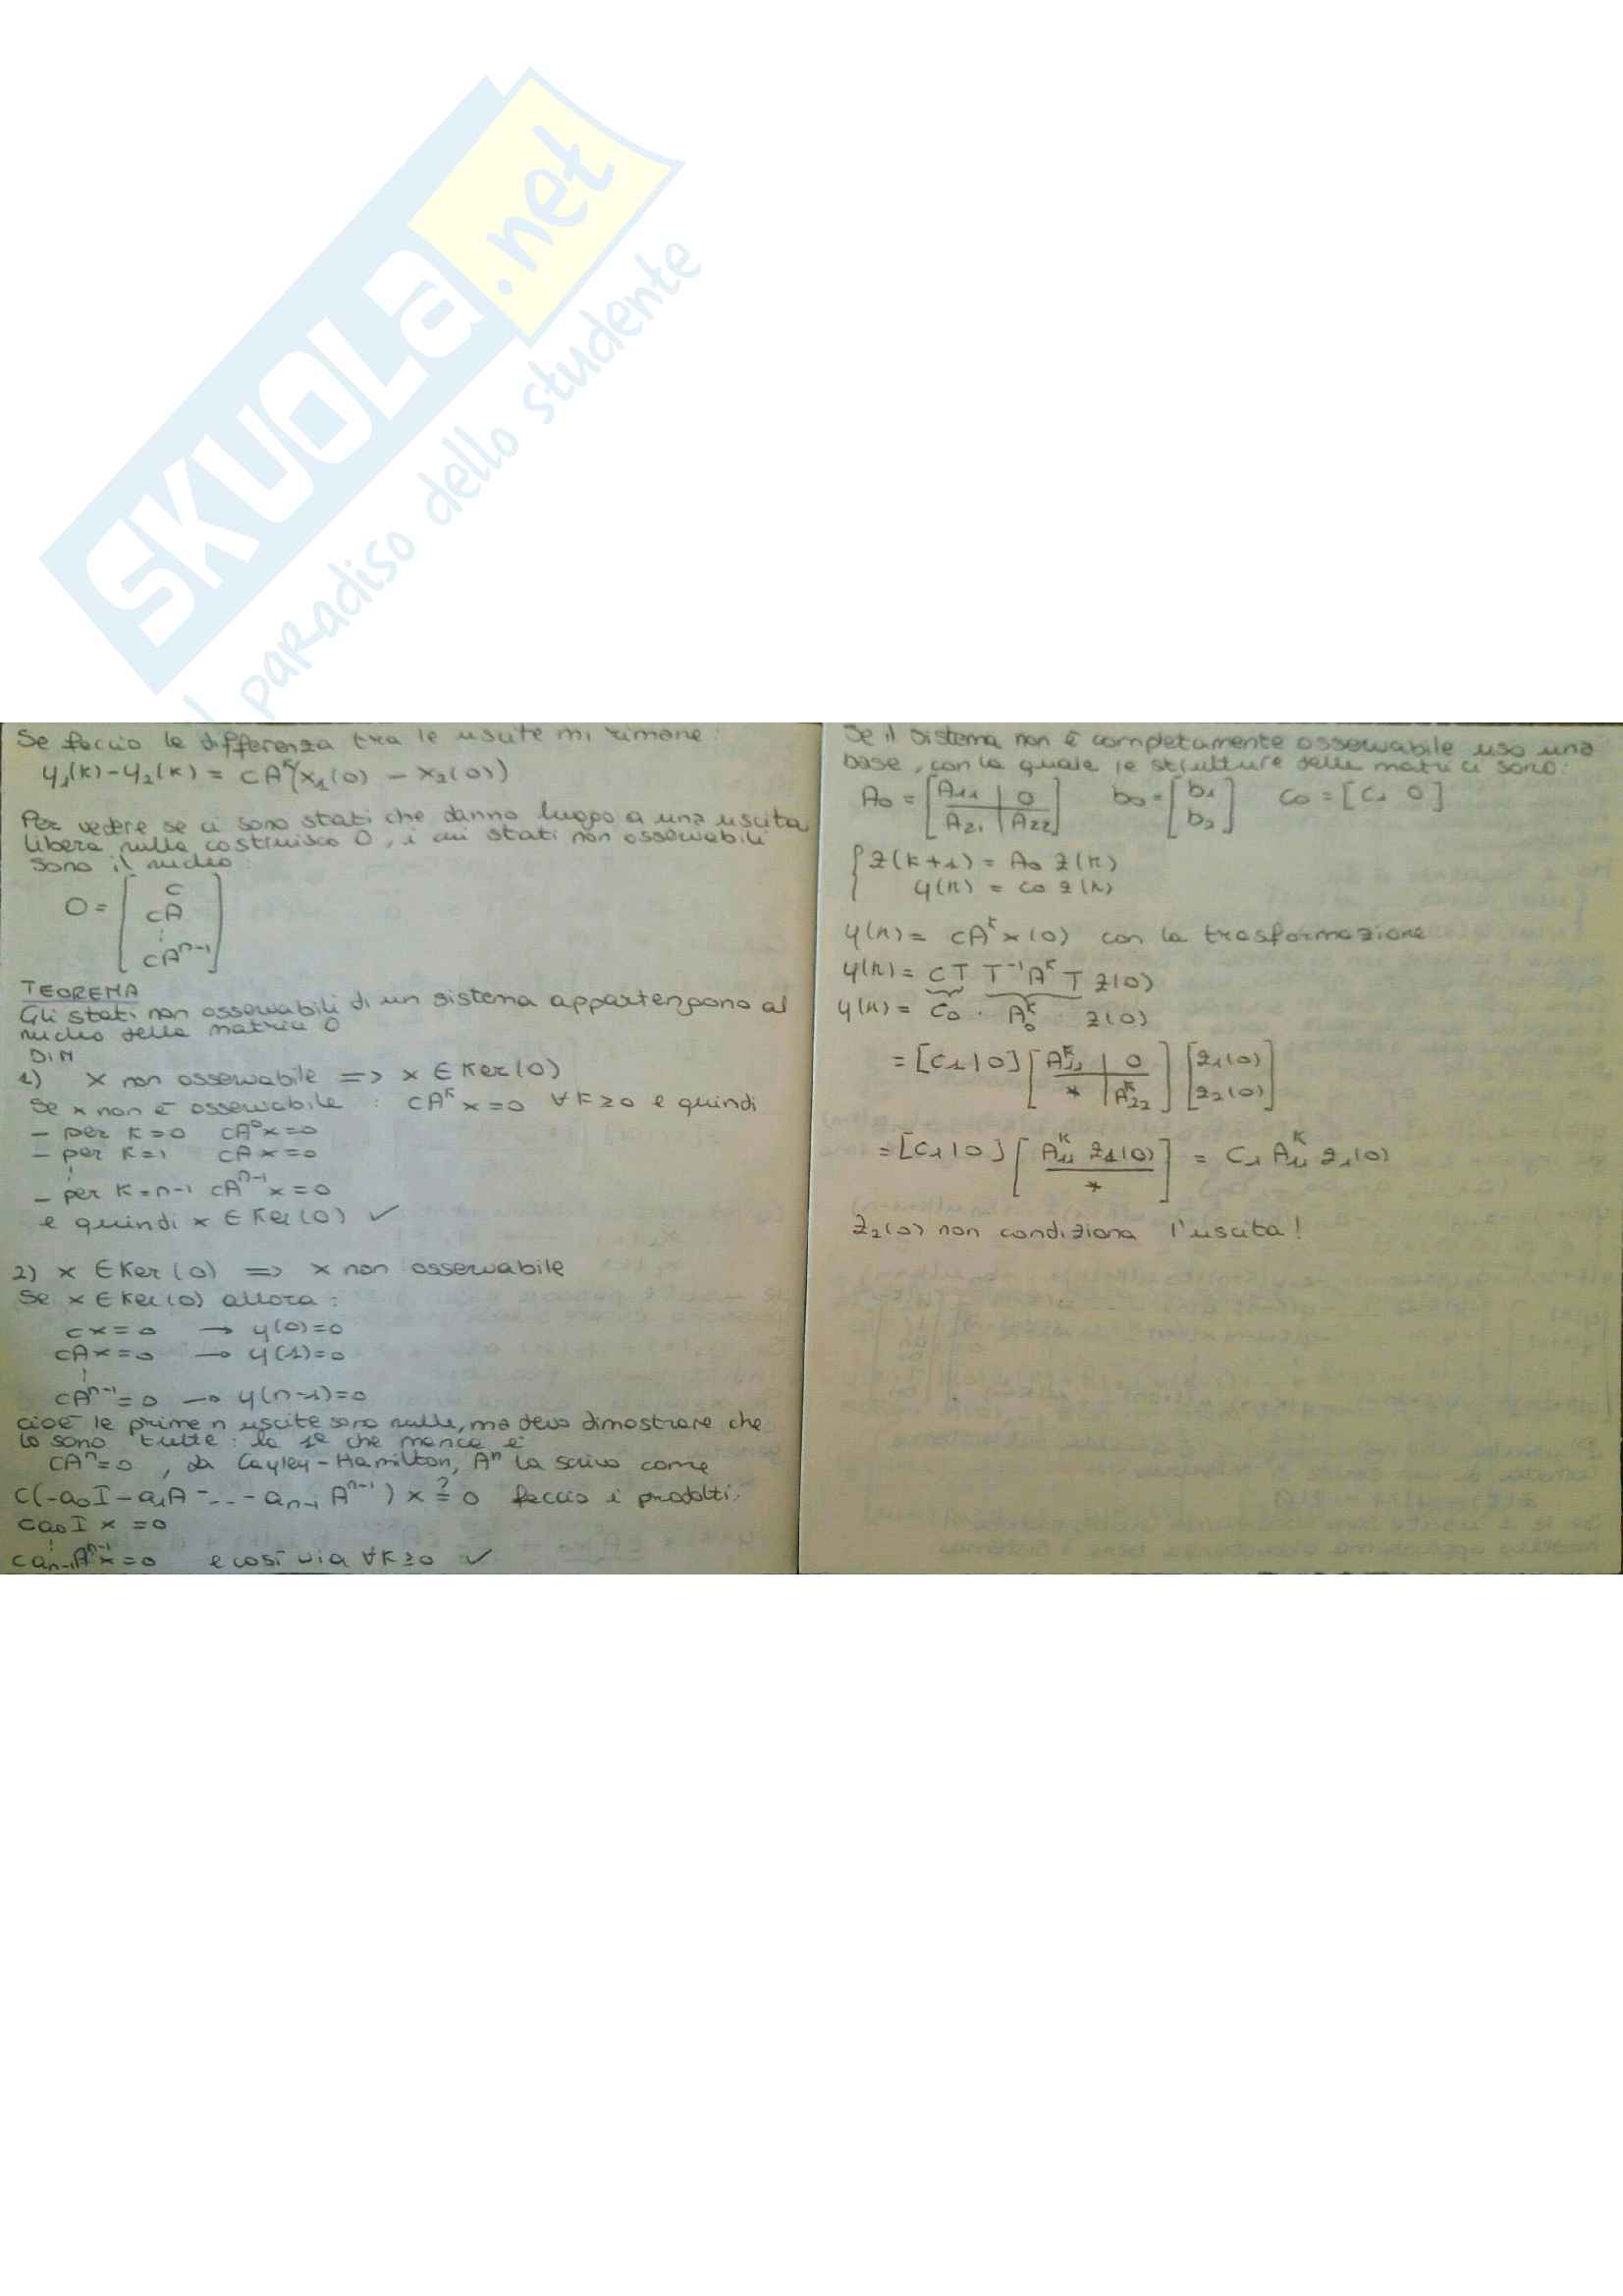 SKUOLA.net
paradiso dello studente
Se faccio le differenza tra le uscite mi rimane:
y₁(k)-y₂(k) = cAᵏ(x₁(0) - x₂(0))
Per vedere se ci sono stati che danno luogo a una uscita
libera nulla costruisco O, i cui stati non osservabili
sono il nucleo:
O = [c
cA
⋮
cAⁿ⁻¹]
TEOREMA
Gli stati non osservabili di un sistema appartengono al
nucleo della matrice O
DIM
1) x non osservabile => x ∈ Ker(O)
Se x non è osservabile : cAᵏx=0 ∀k≥0 e quindi
- per k=0 cA⁰x=0
- per k=1 cAx=0
⋮
- per k=n-1 cAⁿ⁻¹x=0
e quindi x ∈ Ker(O) ✓
2) x ∈ Ker(O) => x non osservabile
Se x ∈ Ker(O) allora:
cx=0 → y(0)=0
cAx=0 → y(1)=0
⋮
cAⁿ⁻¹=0 → y(n-1)=0
cioè le prime n uscite sono nulle, ma devo dimostrare che
lo sono tutte: la 1ª che manca è
cAⁿ=0, da Cayley-Hamilton, Aⁿ la scrivo come
c(-a₀I-a₁A-...-aₙ₋₁Aⁿ⁻¹)x ≟ 0 faccio i prodotti:
ca₀Ix=0
⋮
caₙ₋₁Aⁿ⁻¹x=0 e così via ∀k≥0 ✓
Se il sistema non è completamente osservabile uso una
base, con la quale le strutture delle matrici sono:
A₀ = [A₁₁ | 0
A₂₁ | A₂₂] b₀ = [b₁
b₂] c₀ = [c₁ 0]
{ z(k+1) = A₀ z(k)
y(k) = c₀ z(k)
y(k) = cAᵏx(0) con la trasformazione
y(k) = CT T⁻¹AᵏT z(0)
y(k) = C₀ · A₀ᵏ · z(0)
= [C₁|0] [A₁₁ᵏ | 0
* | A₂₂ᵏ] [z₁(0)
z₂(0)]
= [C₁|0] [A₁₁ᵏ z₁(0)
*] = C₁ A₁₁ᵏ z₁(0)
z₂(0) non condiziona l'uscita!